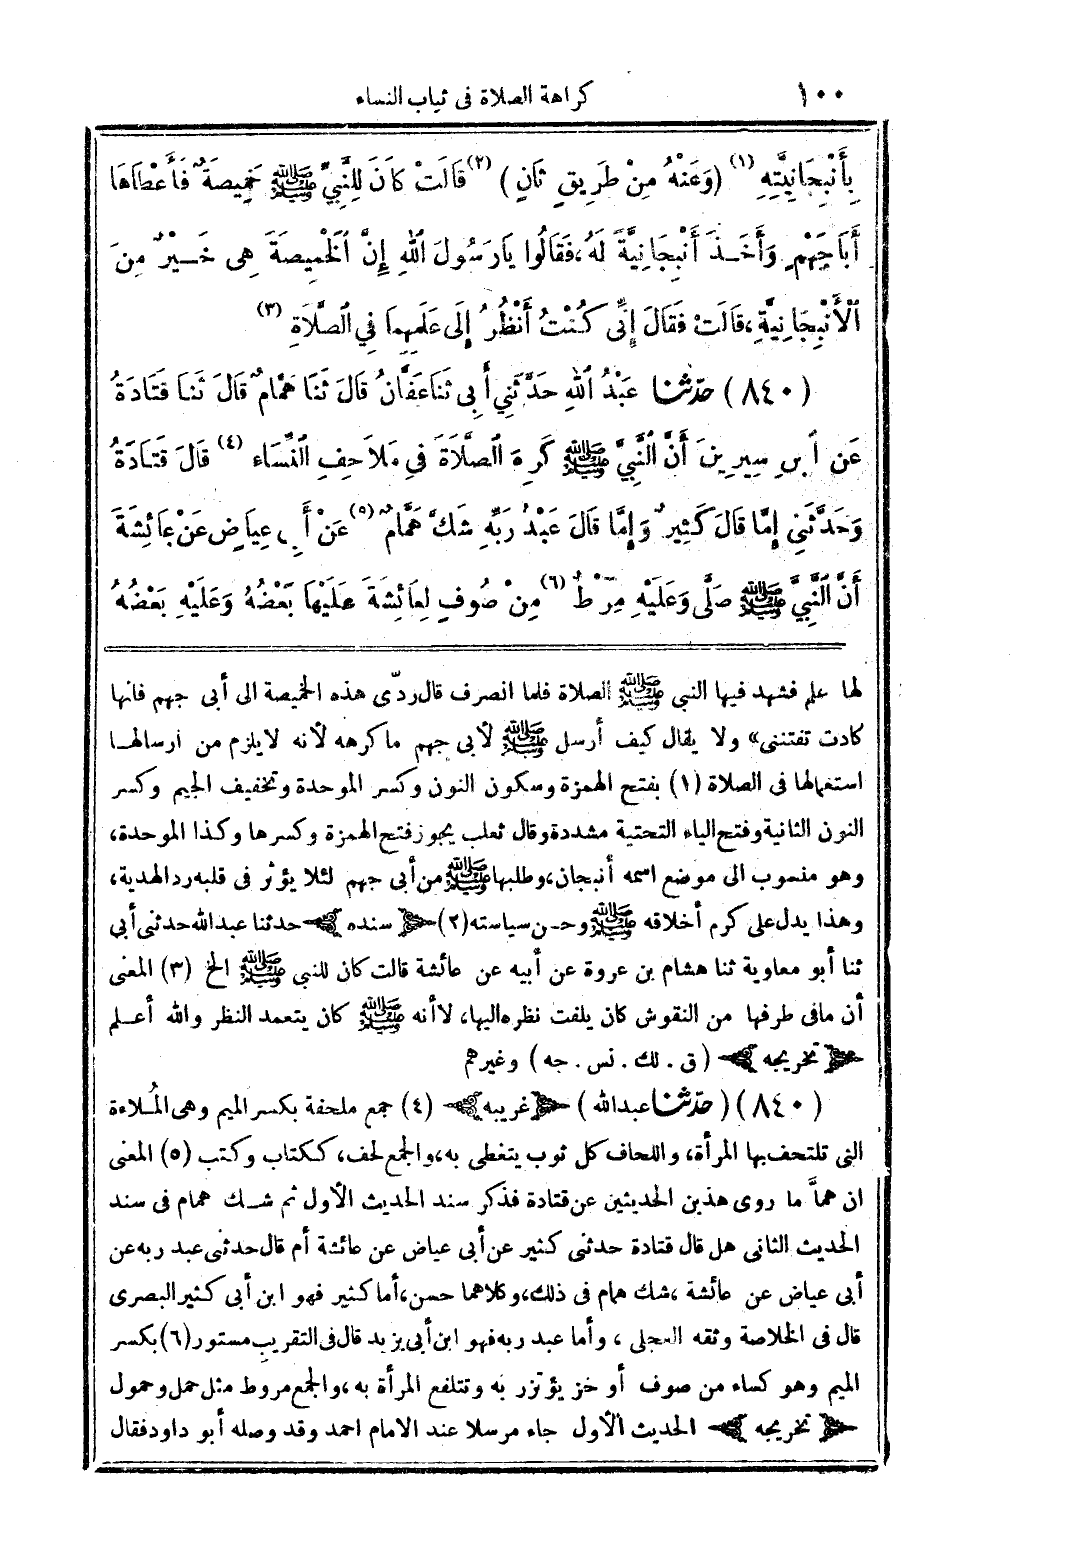 ١٠٠ كراهة الصلاة فى ثياب النساء
بِأَنْبِجَانِيَّتِهِ (١) (وَعَنْهُ مِنْ طَرِيقٍ ثَانٍ) (٢) قَالَتْ كَانَ لِلنَّبِيِّ ﷺ خَمِيصَةٌ فَأَعْطَاهَا
أَبَا جَهْمٍ وَأَخَذَ أَنْبِجَانِيَّةً لَهُ، فَقَالُوا يَارَسُولَ اللهِ إِنَّ الْخَمِيصَةَ هِىَ خَيْرٌ مِنَ
الْأَنْبِجَانِيَّةِ، قَالَتْ فَقَالَ إِنِّى كُنْتُ أَنْظُرُ إِلَى عَلَمِهِمَا فِي الصَّلَاةِ (٣)
(٨٤٠) حَدَّثَنَا عَبْدُ اللهِ حَدَّثَنِي أَبِى ثَنَا عَفَّانُ قَالَ ثَنَا هَمَّامٌ قَالَ ثَنَا قَتَادَةُ
عَنِ ابْنِ سِيرِينَ أَنَّ النَّبِيَّ ﷺ كَرِهَ الصَّلَاةَ فِى مَلَاحِفِ النِّسَاءِ (٤) قَالَ قَتَادَةُ
وَحَدَّثَنِي إِمَّا قَالَ كَثِيرٌ وَإِمَّا قَالَ عَبْدُ رَبِّهِ شَكَّ هَمَّامٌ (٥) عَنْ أَبِى عِيَاضٍ عَنْ عَائِشَةَ
أَنَّ النَّبِيَّ ﷺ صَلَّى وَعَلَيْهِ مِرْطٌ (٦) مِنْ صُوفٍ لِعَائِشَةَ عَلَيْهَا بَعْضُهُ وَعَلَيْهِ بَعْضُهُ
لها علم فشهد فيها النبى ﷺ الصلاة فلما انصرف قال ردّى هذه الخميصة الى أبى جهم فانها
كادت تفتننى» ولا يقال كيف أرسل ﷺ لأبى جهم ماكرهه لأنه لايلزم من ارسالها
استعمالها فى الصلاة (١) بفتح الهمزة وسكون النون وكسر الموحدة وتخفيف الجيم وكسر
النون الثانية وفتح الياء التحتية مشددة وقال ثعلب يجوز فتح الهمزة وكسرها وكذا الموحدة،
وهو منسوب الى موضع اسمه أنبجان، وطلبها ﷺ من أبى جهم لئلا يؤثر فى قلبه رد الهدية،
وهذا يدل على كرم أخلاقه ﷺ وحسن سياسته (٢) ﴿سنده﴾ حدثنا عبدالله حدثنى أبى
ثنا أبو معاوية ثنا هشام بن عروة عن أبيه عن عائشة قالت كان للنبى ﷺ الخ (٣) المعنى
أن مافى طرفها من النقوش كان يلفت نظره اليها، لاأنه ﷺ كان يتعمد النظر والله أعلم
﴿تخريجه﴾ (ق. لك. نس. جه) وغيرهم
(٨٤٠) (حدثنا عبدالله) ﴿غريبه﴾ (٤) جمع ملحفة بكسر الميم وهى المُلاءة
التى تلتحف بها المرأة، واللحاف كل ثوب يتغطى به، والجمع لحف، ككتاب وكتب (٥) المعنى
ان همامًا ما روى هذين الحديثين عن قتادة فذكر سند الحديث الأول ثم شك همام فى سند
الحديث الثانى هل قال قتادة حدثنى كثير عن أبى عياض عن عائشة أم قال حدثنى عبد ربه عن
أبى عياض عن عائشة، شك همام فى ذلك، وكلاهما حسن، أما كثير فهو ابن أبى كثير البصرى
قال فى الخلاصة وثقه العجلى، وأما عبد ربه فهو ابن أبى يزيد قال فى التقريب مستور (٦) بكسر
الميم وهو كساء من صوف أو خز يؤتزر به وتتلفع المرأة به، والجمع مروط مثل حمل وحمول
﴿تخريجه﴾ الحديث الأول جاء مرسلا عند الامام احمد وقد وصله أبو داود فقال